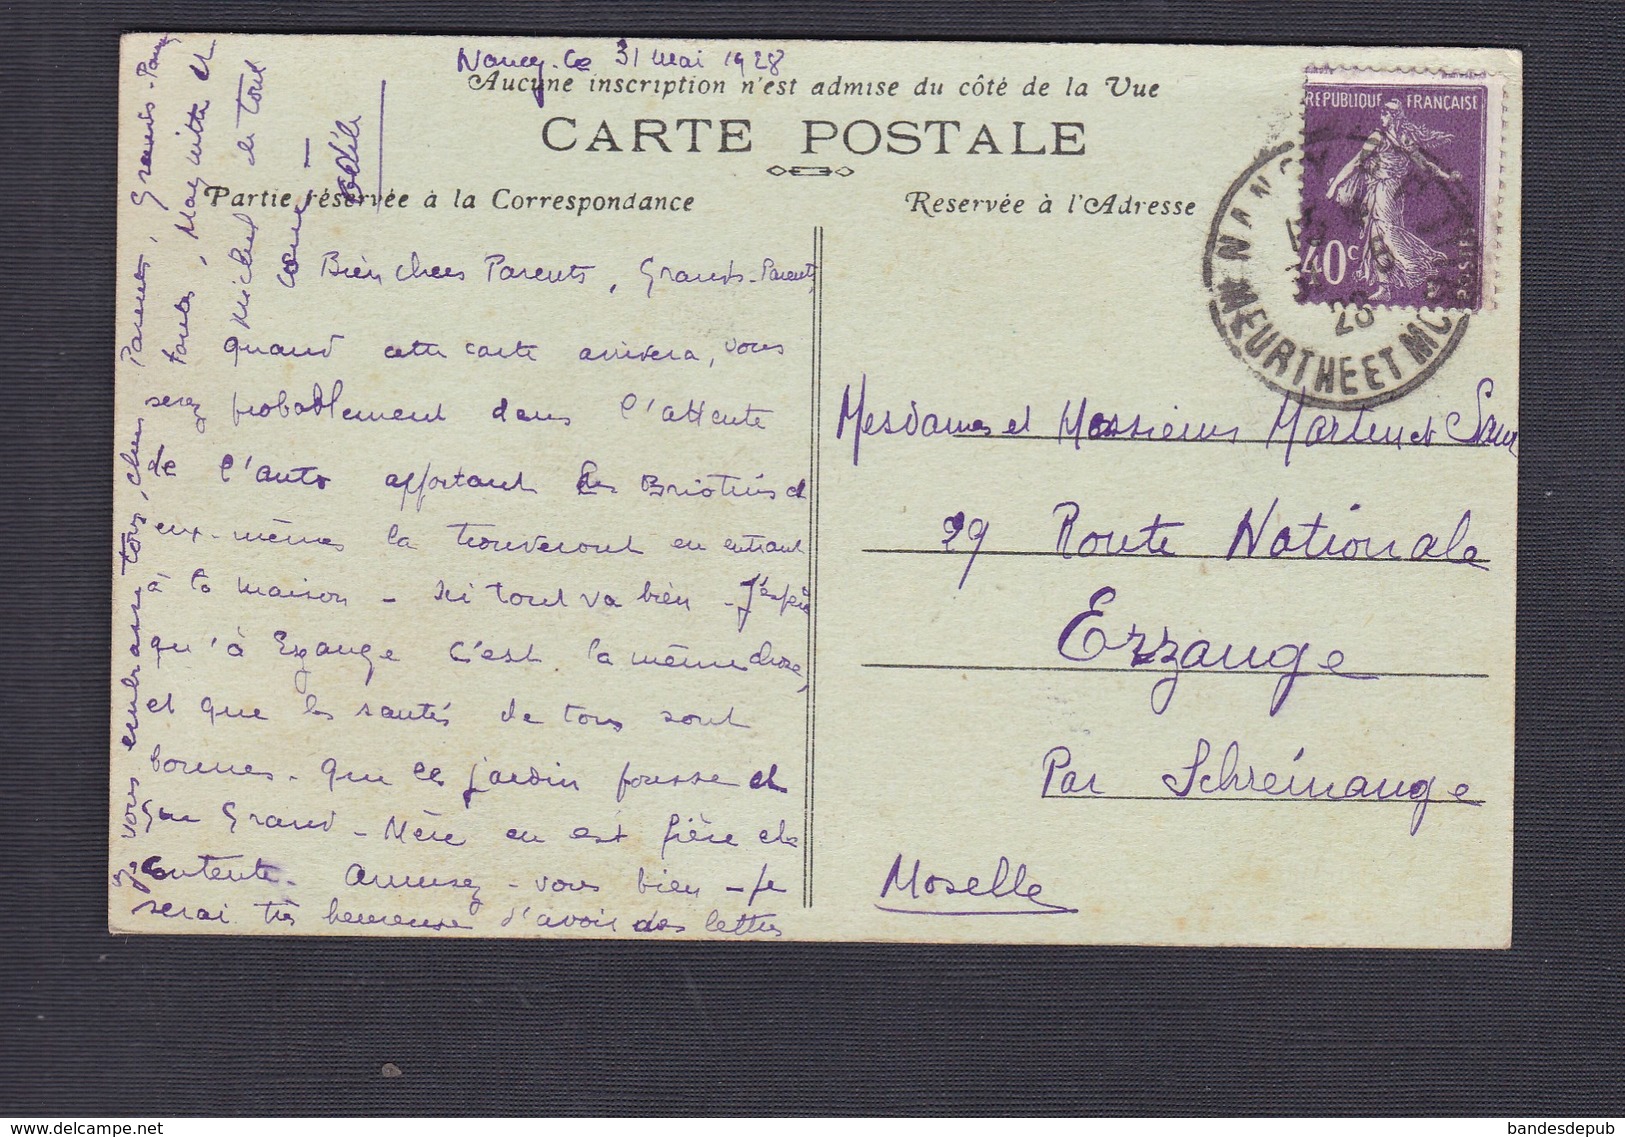 Nancy. le 31 mai 1928
Aucune inscription n'est admise du côté de la Vue
CARTE POSTALE
Partie réservée à la Correspondance
Reservée à l'Adresse
REPUBLIQUE FRANÇAISE
40c
NANCY
MEURTHE ET MO
28
Bien chers Parents, Grands-Parents,
quand cette carte arrivera, vous
serez probablement dans l'attente
de l'auto apportant les
eux-mêmes la trouveront en entrant
à la maison - Ici tout va bien - J'espère
qu'à Ezange c'est la même chose,
et que les santés de tous sont
bonnes - que le jardin pousse et
que Grand-Mère en est fière et
contente - Amusez-vous bien - Je
serai très heureuse d'avoir des lettres
vous embrasse tous, chers Parents, Grands-Parents
tantes, Marguitte et
Michel de tout
cœur -
Odile
Mesdames et Messieurs Martin et
29 Route Nationale
Erzange
Par Schreinange
Moselle
bandesdepub